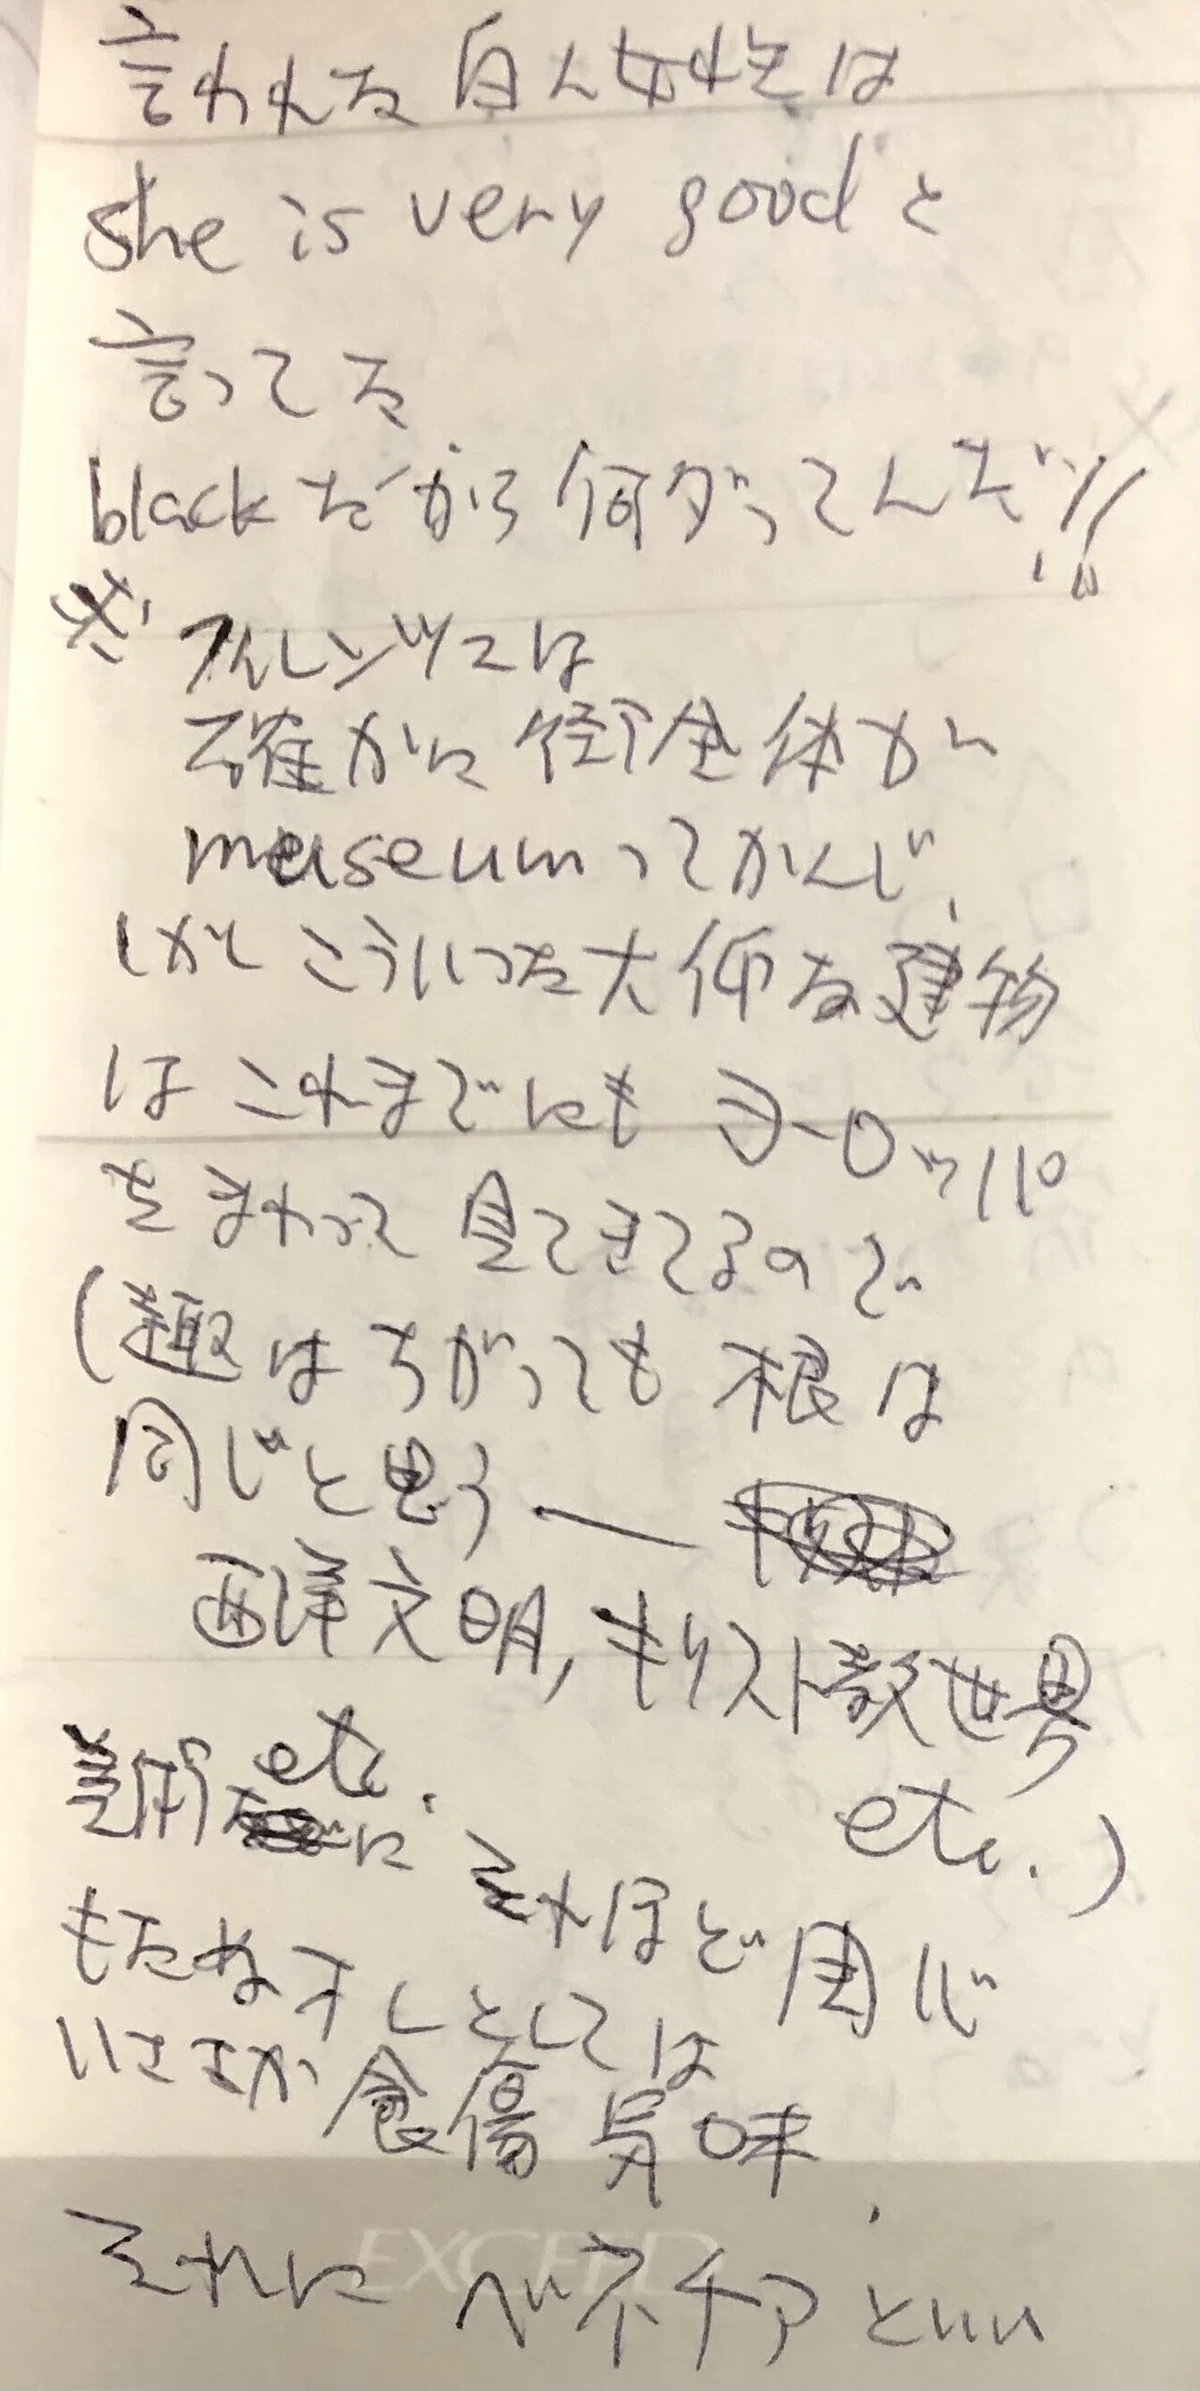 言われる白人女性は
she is very goodと
言ってる
blackだから何ダってんだ!!
※ フィレンツェは
確かに街全体が
museumってかんじ、
しかしこういった大仰な建物
はこれまでにもヨーロッパ
をまわって見てきてるので
(趣はちがっても根は
同じと思う —
西洋文明, キリスト教世界
etc.)
美術 etc.に それほど用じ
もたない
としては
いささか食傷気味、
EXCEED
それにベネチアといい